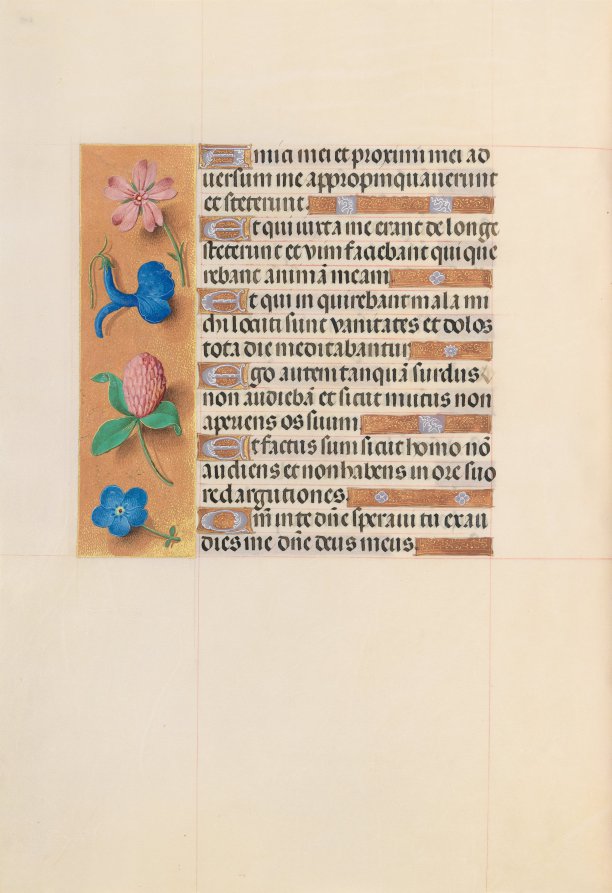 Amici mei et proximi mei ad
uersum me appropinquauerunt
et steterunt.
Et qui iuxta me erant de longe
steterunt et vim faciebant qui que
rebant animā meam
Et qui inquirebant mala mi
chi locuti sunt vanitates et dolos
tota die meditabantur
Ego autem tanquā surdus
non audiebā et sicut mutus non
aperiens os suum
Et factus sum sicut homo nō
audiens et non habens in ore suo
redargutiones.
Qm̄ in te dn̄e speraui tu exau
dies me dn̄e deus meus.